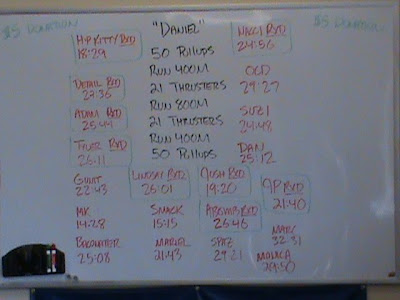 $5 DONATION
"DANIEL"
$5 DONATION
50 PULLUPS
RUN 400M
21 THRUSTERS
RUN 800M
21 THRUSTERS
RUN 400M
50 PULLUPS
18:29
DETAIL RXD
27:36
ADAM RXD
25:44
TYLER RXD
26:11
NICCI RXD
24:56
OCD
29:27
SUZI
24:48
DAN
25:12
22:43
LINDSAY RXD
26:01
JOSH RXD
19:20
JP RXD
21:40
MK
14:28
SMACK
15:15
RXD
26:46
MARC
32:31
25:08
MARIEL
21:43
SPITZ
29:21
MONICA
29:50